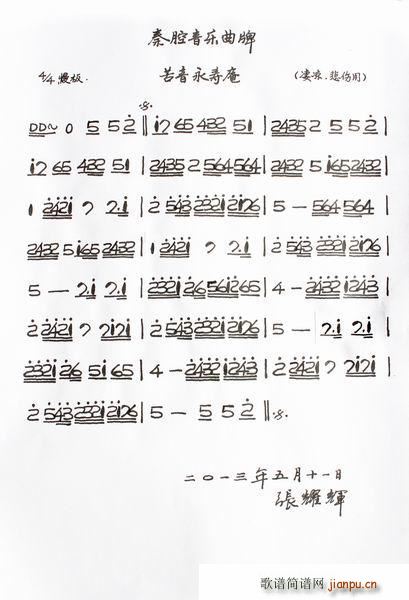 秦腔音乐曲牌
4/4 慢板. 苦音永寿庵 (凄凉、悲伤用)
DD~ 0 5 5 2 ‖ 12 65 432 51 | 2435 2 5 5 2 |
12 65 432 51 | 2435 2 564564 | 2432 5 1652432 |
1 2421 7 2.1 | 2 543 2321 2176 | 5 — 564 564 |
2432 5165 2432 | 1 2421 7 2.1 | 2 543 2321 2176 |
5 — 7.1 2.1 | 2321 26 561 265 | 4 — 2432 1243 |
2 2421 7 2121 | 2 543 2321 2176 | 5 — 7.1 2.1 |
2321 26 51 65 | 4 — 2432 1243 | 2 2421 7 2121 |
2 543 2321 2176 | 5 — 5 5 2 ‖
二〇一三年五月十一日
張耀輝
歌谱简谱网
www.jianpu.cn